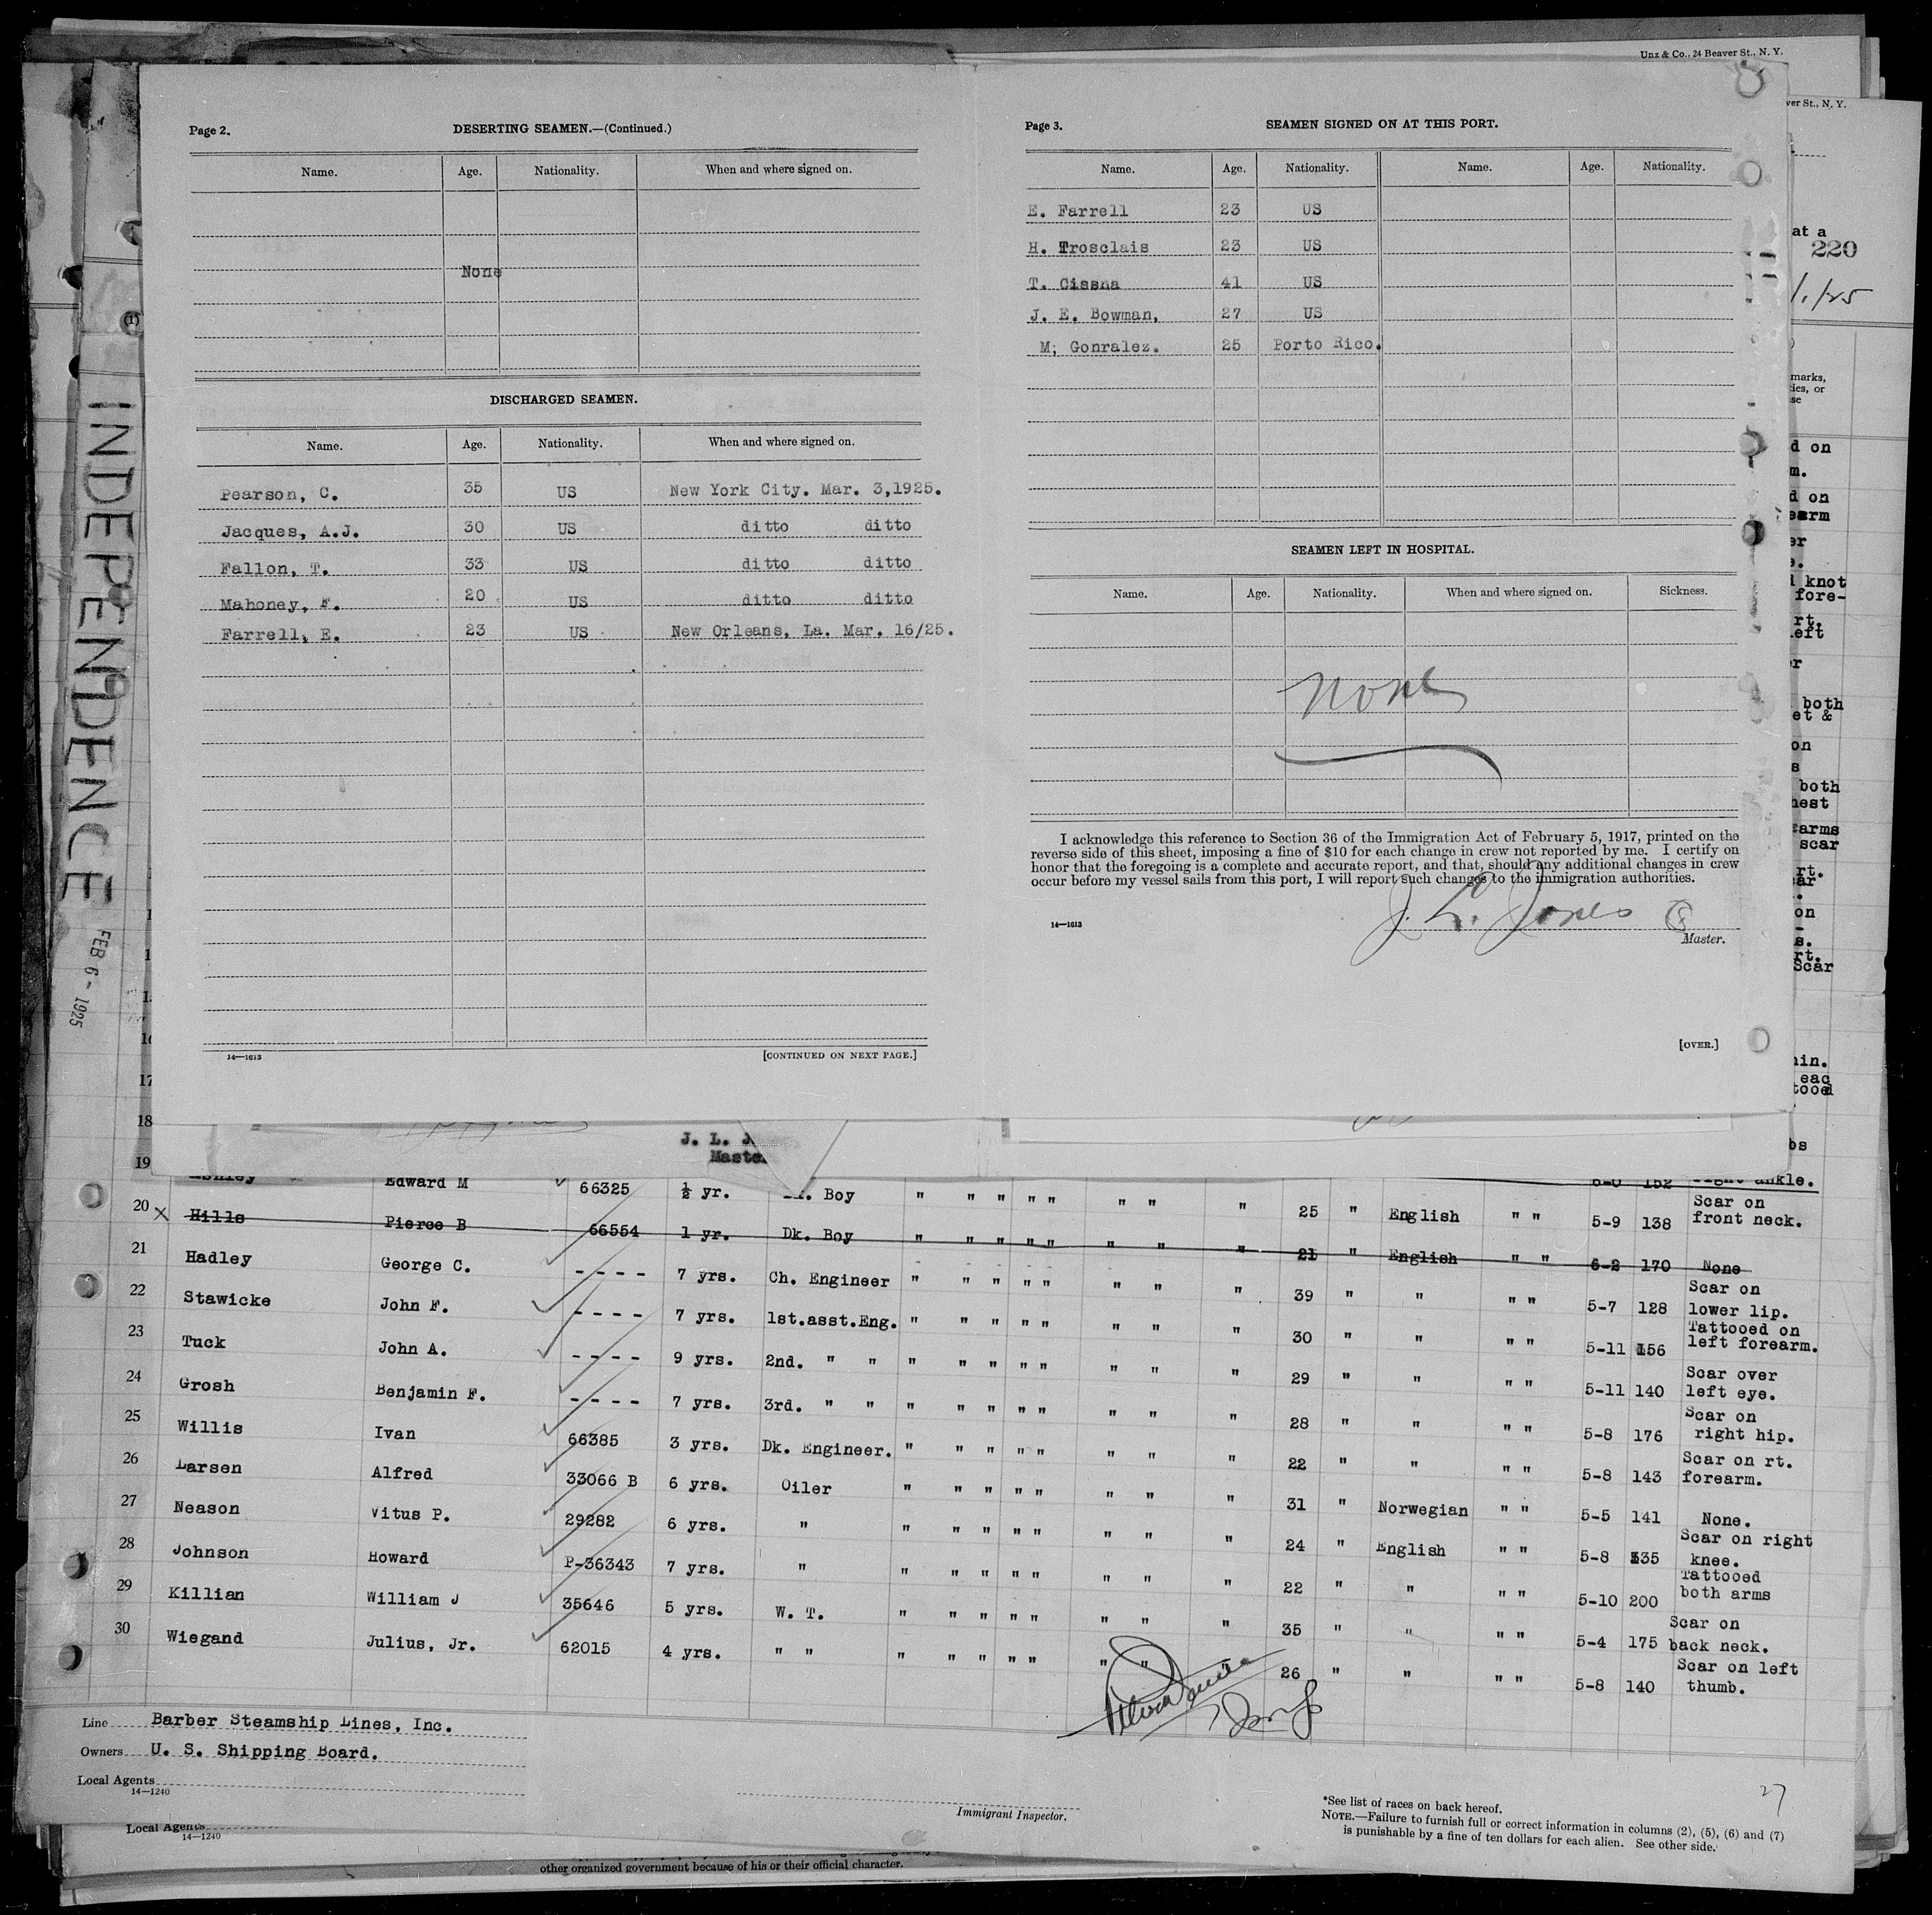 Unz & Co., 24 Beaver St., N. Y.
ver St., N. Y.
at a
220
1/25
marks,
ties, or
se
INDEPENDENCE
FEB 6 - 1925
(1)
Page 2.
DESERTING SEAMEN.—(Continued.)
Name. Age. Nationality. When and where signed on.
None
DISCHARGED SEAMEN.
Name. Age. Nationality. When and where signed on.
Pearson, C. 35 US New York City. Mar. 3,1925.
Jacques, A.J. 30 US ditto ditto
Fallon, T. 33 US ditto ditto
Mahoney, F. 20 US ditto ditto
Farrell, E. 23 US New Orleans, La. Mar. 16/25.
14—1613
[CONTINUED ON NEXT PAGE.]
Page 3.
SEAMEN SIGNED ON AT THIS PORT.
Name. Age. Nationality. Name. Age. Nationality.
E. Farrell 23 US
H. Trosclais 23 US
T. Cissna 41 US
J. E. Bowman, 27 US
M, Gonralez. 25 Porto Rico.
SEAMEN LEFT IN HOSPITAL.
Name. Age. Nationality. When and where signed on. Sickness.
None
I acknowledge this reference to Section 36 of the Immigration Act of February 5, 1917, printed on the
reverse side of this sheet, imposing a fine of $10 for each change in crew not reported by me. I certify on
honor that the foregoing is a complete and accurate report, and that, should any additional changes in crew
occur before my vessel sails from this port, I will report such changes to the immigration authorities.
J. L. Jones
14—1613
Master.
[OVER.]
d on
m.
d on
earm
er
e.
knot
fore-
rt.
left
r
both
et &
on
s
both
hest
earms
scar
rt.
on
s.
rt.
Scar
hin.
eac
tooed
bs
17
18
J. L. J
Maste
19 Edward M 66325 ½ yr. Boy " " " " " " " " 25 " English " " 5-9 138 Scar on
front neck.
6-0 152 right ankle.
20 × Hills Pierce B 66554 1 yr. Dk. Boy " " " " " " " " 21 " English " " 6-2 170 None
21 Hadley George C. - - - - 7 yrs. Ch. Engineer " " " " " " " " 39 " " " " 5-7 128 Scar on
lower lip.
22 Stawicke John F. - - - - 7 yrs. 1st.asst.Eng. " " " " " " " " 30 " " " " 5-11 156 Tattooed on
left forearm.
23 Tuck John A. - - - - 9 yrs. 2nd. " " " " " " " " " " 29 " " " " 5-11 140 Scar over
left eye.
24 Grosh Benjamin F. - - - - 7 yrs. 3rd. " " " " " " " " " " 28 " " " " 5-8 176 Scar on
right hip.
25 Willis Ivan 66385 3 yrs. Dk. Engineer. " " " " " " " " 22 " " " " 5-8 143 Scar on rt.
forearm.
26 Larsen Alfred 33066 B 6 yrs. Oiler " " " " " " " " 31 " Norwegian " " 5-5 141 None.
27 Neason Vitus P. 29282 6 yrs. " " " " " " " " " 24 " English " " 5-8 135 Scar on right
knee.
28 Johnson Howard P-36343 7 yrs. " " " " " " " " " 22 " " " " 5-10 200 Tattooed
both arms
29 Killian William J 35646 5 yrs. W. T. " " " " " " " " 35 " " " " 5-4 175 Scar on
back neck.
30 Wiegand Julius, Jr. 62015 4 yrs. " " " " " " " " " " 26 " " " " 5-8 140 Scar on left
thumb.
Line Barber Steamship Lines, Inc.
Owners U. S. Shipping Board.
Local Agents
14—1240
Immigrant Inspector.
27
*See list of races on back hereof.
NOTE.—Failure to furnish full or correct information in columns (2), (5), (6) and (7)
is punishable by a fine of ten dollars for each alien. See other side.
Local Agents
14—1240
other organized government because of his or their official character.